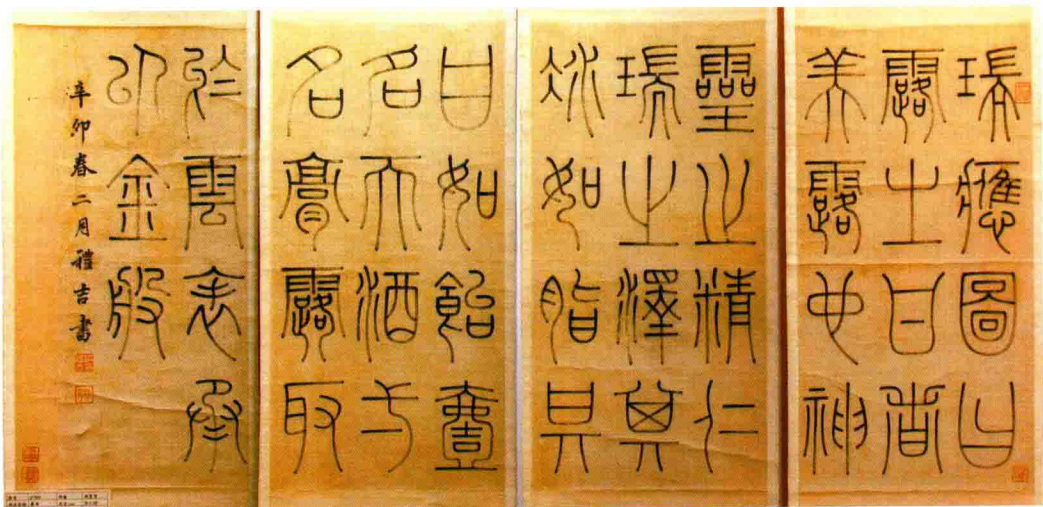 瑞應圖曰
露之甘者
美露也神
靈之精仁
瑞之澤其
冰如脂其
甘如飴壹
名天酒
名膏露取
於雲表承
以金般
辛卯春二月禮吉書